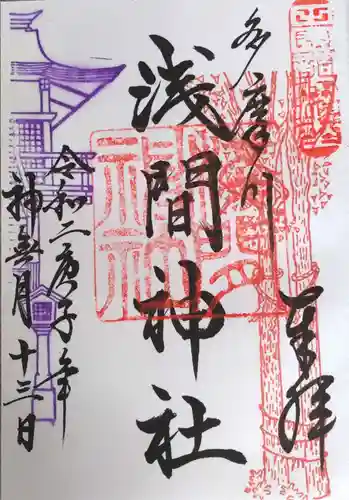 多摩川
奉拝
浅間神社
令和二庚子年
神無月十三日